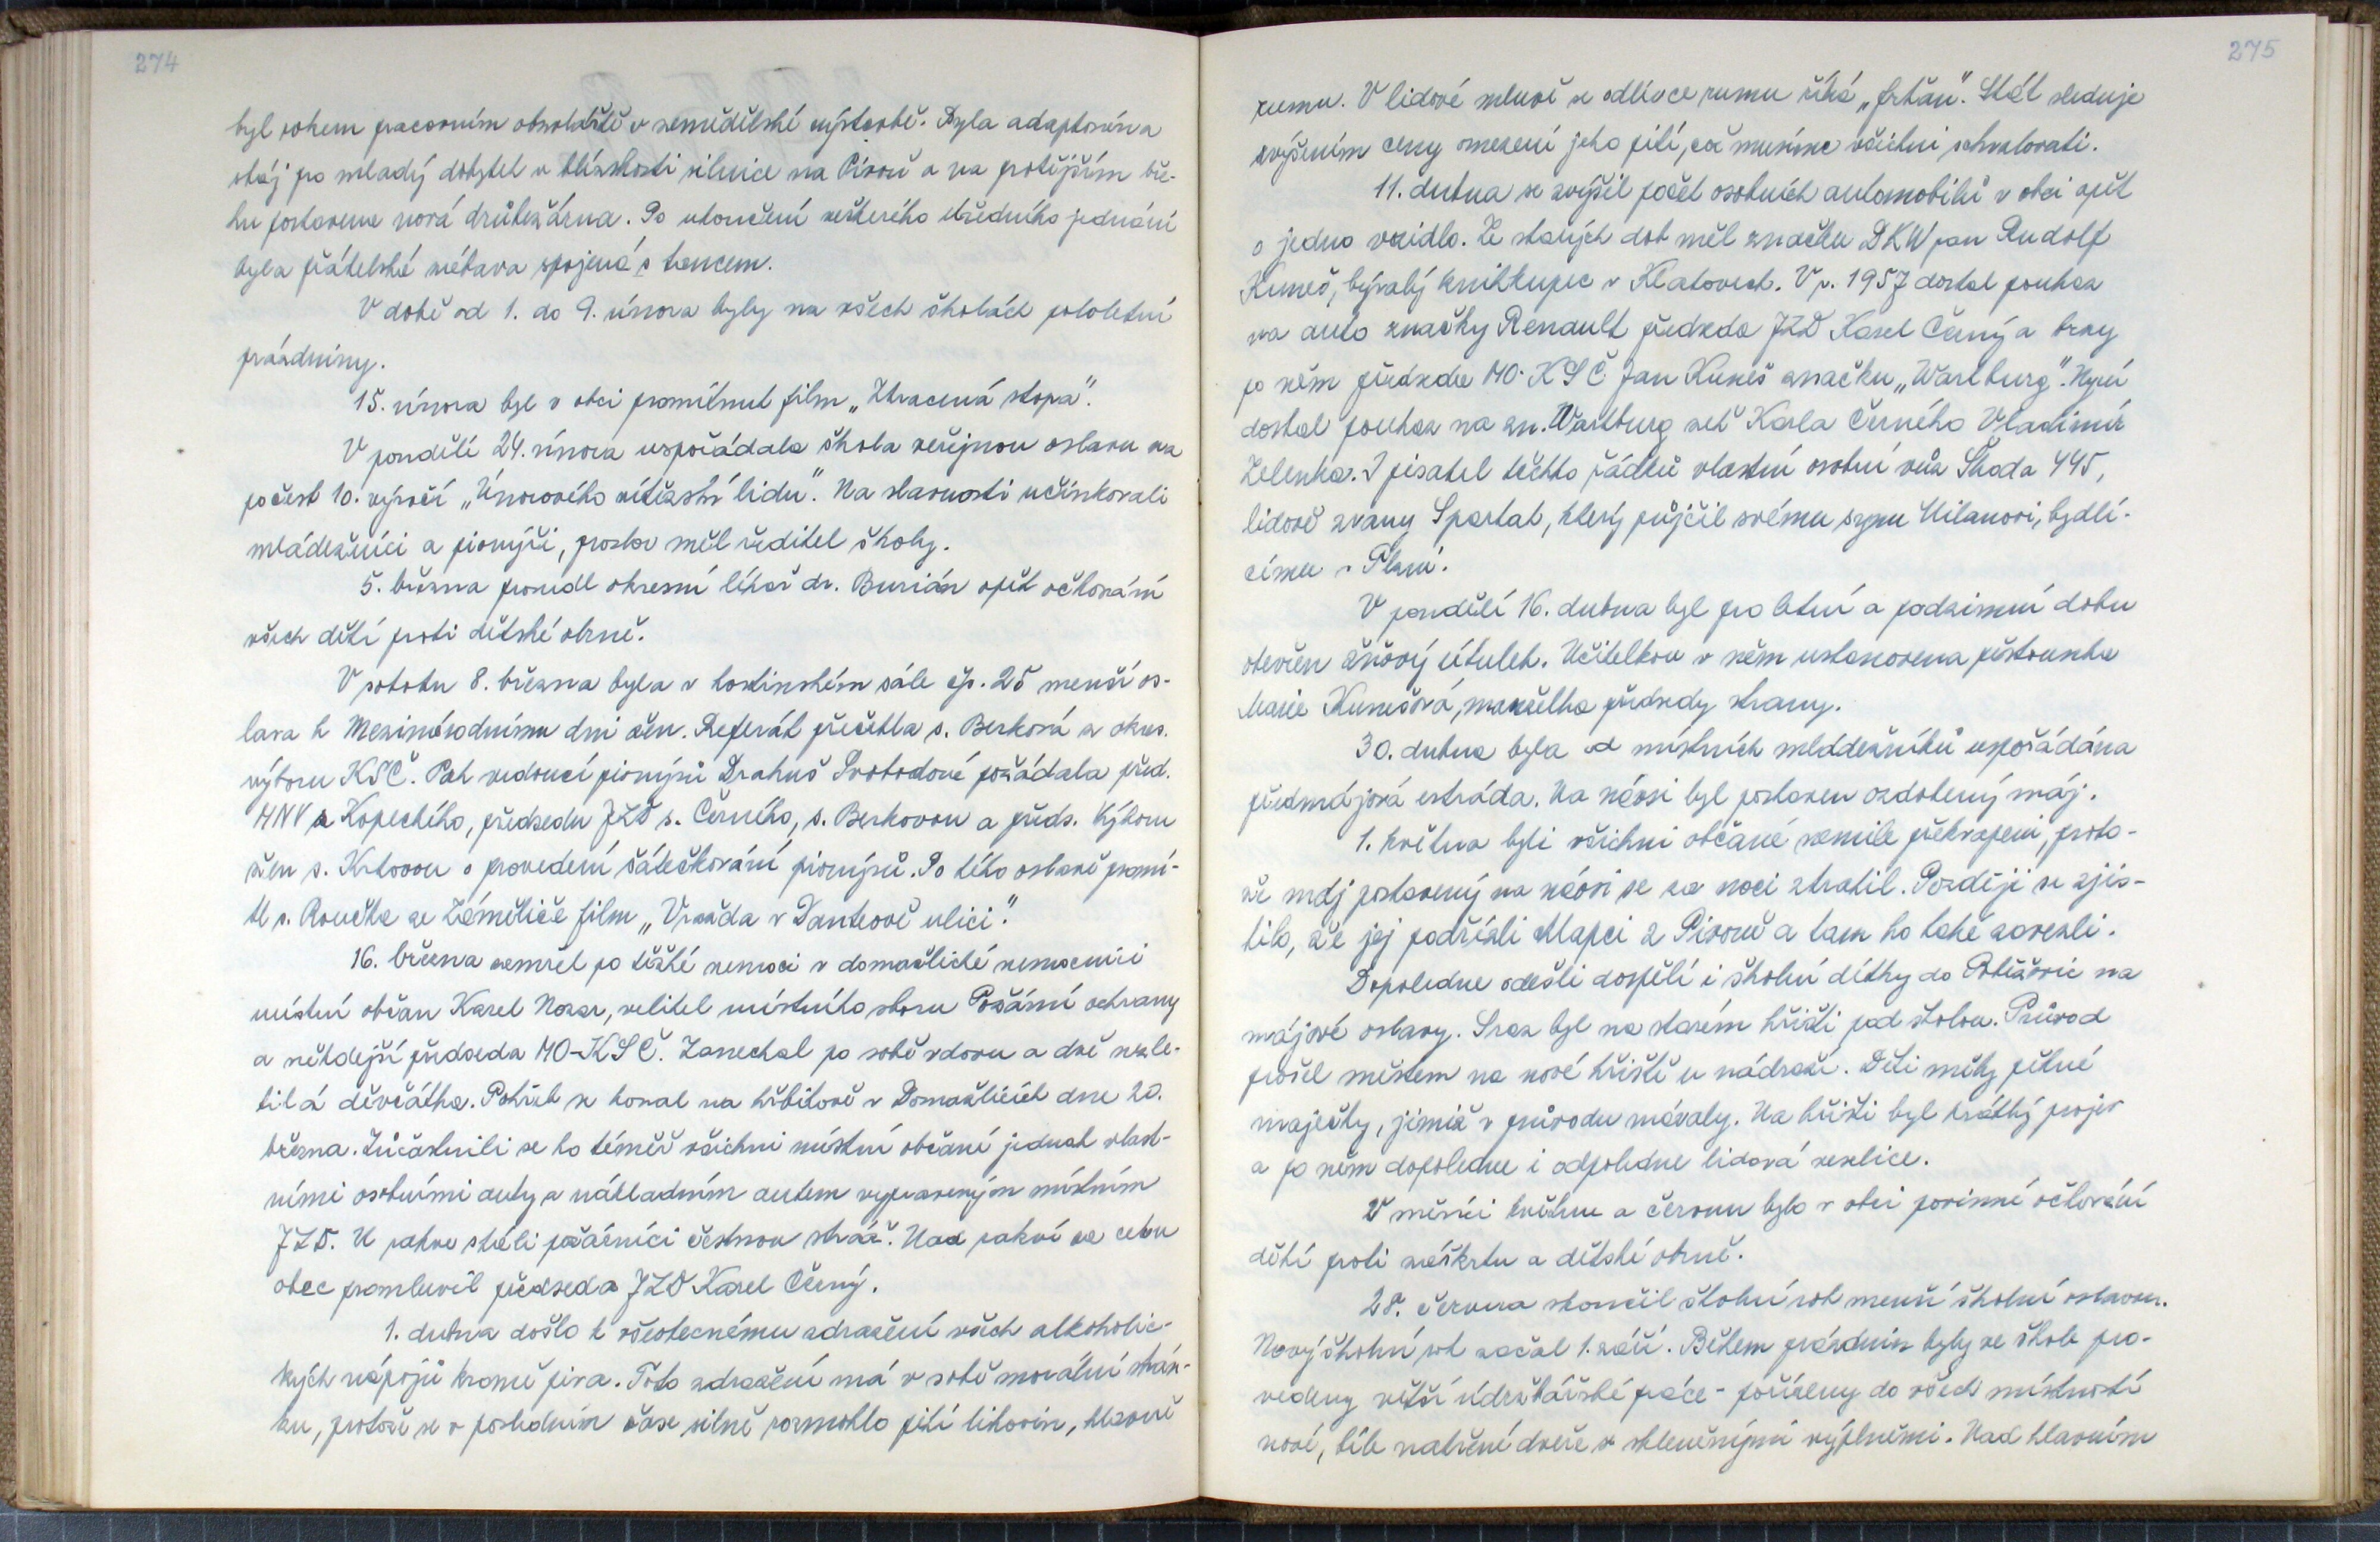 274
byl rokem pracovním obzvláště v zemědělské výstavbě. Byla adaptována
stáj pro mladý dobytek v blízkosti silnice na Pivoň a na protějším bře-
hu postavena nová drůbežárna. Po ukončení veškerého úředního jednání
byla přátelská zábava spojená s tancem.
V době od 1. do 9. února byly na všech školách pololetní
prázdniny.
15. února byl v obci promítnut film „Ztracená stopa".
V pondělí 24. února uspořádala škola veřejnou oslavu na
počest 10. výročí „Únorového vítězství lidu". Na slavnosti učinkovali
mládežníci a pionýři, proslov měl ředitel školy.
5. března provedl okresní lékař dr. Burián opět očkování
všech dětí proti dětské obrně.
V sobotu 8. března byla v hostinském sále čp. 25 menší os-
lava k Mezinárodnímu dni žen. Referát přečetla s. Berková z okres.
výboru KSČ. Pak vedoucí pionýrů Drahuš Svobodová požádala před.
MNV s. Kopeckého, předsedu JZD s. Černého, s. Berkovou a předs. Výboru
žen s. Krtovou o provedení šátečkování pionýrů. Po této oslavě promí-
tl s. Roučka ze Zámělíče film „Vražda v Danteově ulici".
16. března zemřel po těžké nemoci v domažlické nemocnici
místní občan Karel Nozar, velitel místního sboru Požární ochrany
a někdejší předseda MO-KSČ. Zanechal po sobě vdovu a dvě nezle-
tilá děvčátka. Pohřeb se konal na hřbitově v Domažlicích dne 20.
března. Zúčastnili se ho téměř všichni místní občané jednak vlast-
ními osobními auty a nákladním autem vypraveným místním
JZD. U rakve stáli požárníci čestnou stráž. Nad rakví za celou
obec promluvil předseda JZD Karel Černý.
1. dubna došlo k všeobecnému zdražení všech alkoholic-
kých nápojů kromě piva. Toto zdražení má v sobě morální strán-
ku, protože se v posledním čase silně rozmohlo pití lihovin, hlavně
275
rumu. V lidové mluvě se odlivce rumu říká „frťan". Stát sleduje
zvýšením ceny omezení jeho pití, což musíme všichni schvalovati.
11. dubna se zvýšil počet osobních automobilů v obci opět
o jedno vozidlo. Ze starých dob měl značku DKW pan Rudolf
Kuneš, bývalý knihkupec v Klatovech. V r. 1957 dostal poukaz
na auto značky Renault předseda JZD Karel Černý a brzy
po něm předseda MO-KSČ Jan Kuneš značku „Wartburg". Nyní
dostal poukaz na zn. Wartburg zeť Karla Černého Vladimír
Zelenka. I pisatel těchto řádků vlastní osobní vůz Škoda 445,
lidově zvaný Spartak, který půjčil svému synu Milanovi, bydlí-
címu v Plzni.
V pondělí 16. dubna byl pro letní a podzimní dobu
otevřen žňový útulek. Učitelkou v něm ustanovena pěstounka
Marie Kunešová, manželka předsedy strany.
30. dubna byla od místních mládežníků uspořádána
předmájová estráda. Na návsi byl postaven ozdobený máj.
1. května byli všichni občané nemile překvapeni, proto-
že máj postavený na návsi se za noci ztratil. Později se zjis-
tilo, že jej podřízli chlapci z Pivoně a tam ho také zavezli.
Dopoledne odešli dospělí i školní dítky do Poběžovic na
májové oslavy. Sraz byl na starém hřišti pod školou. Průvod
prošel městem na nové hřiště u nádraží. Děti měly pěkné
maječky, jimiž v průvodu mávaly. Na hřišti byl krátký projev
a po něm dopoledne i odpoledne lidová veselice.
V měsíci květnu a červnu bylo v obci povinné očkování
dětí proti záškrtu a dětské obrně.
28. června skončil školní rok menší školní oslavou.
Nový školní rok začal 1. září. Během prázdnin byly ve škole pro-
vedeny větší údržbářské práce - pořízeny do všech místností
nové, bíle natřené dveře se skleněnými výplněmi. Nad hlavním